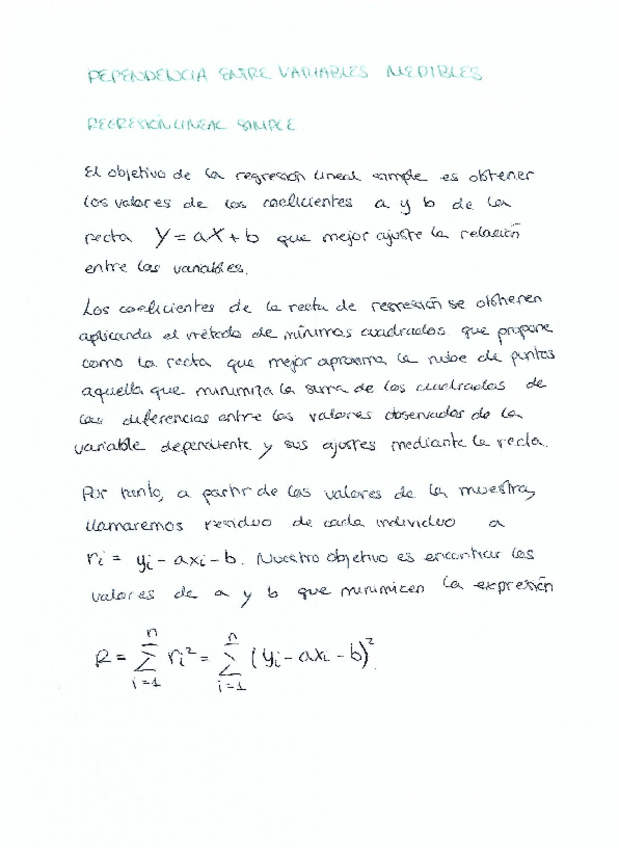 DEPENDENCIA ENTRE VARIABLES MEDIBLES
REGRESIÓN LINEAL SIMPLE
El objetivo de la regresión lineal simple es obtener
los valores de los coeficientes a y b de la
recta Y = aX + b que mejor ajuste la relación
entre las variables.
Los coeficientes de la recta de regresión se obtienen
aplicando el método de mínimos cuadrados que propone
como la recta que mejor aproxima la nube de puntos
aquella que minimiza la suma de los cuadrados de
las diferencias entre los valores observados de la
variable dependiente y sus ajustes mediante la recta.
Por tanto, a partir de los valores de la muestra,
llamaremos residuo de cada individuo a
ri = yi - axi - b. Nuestro objetivo es encontrar los
valores de a y b que minimicen la expresión
R = ∑_{i=1}^{n} ri² = ∑_{i=1}^{n} (yi - axi - b)²